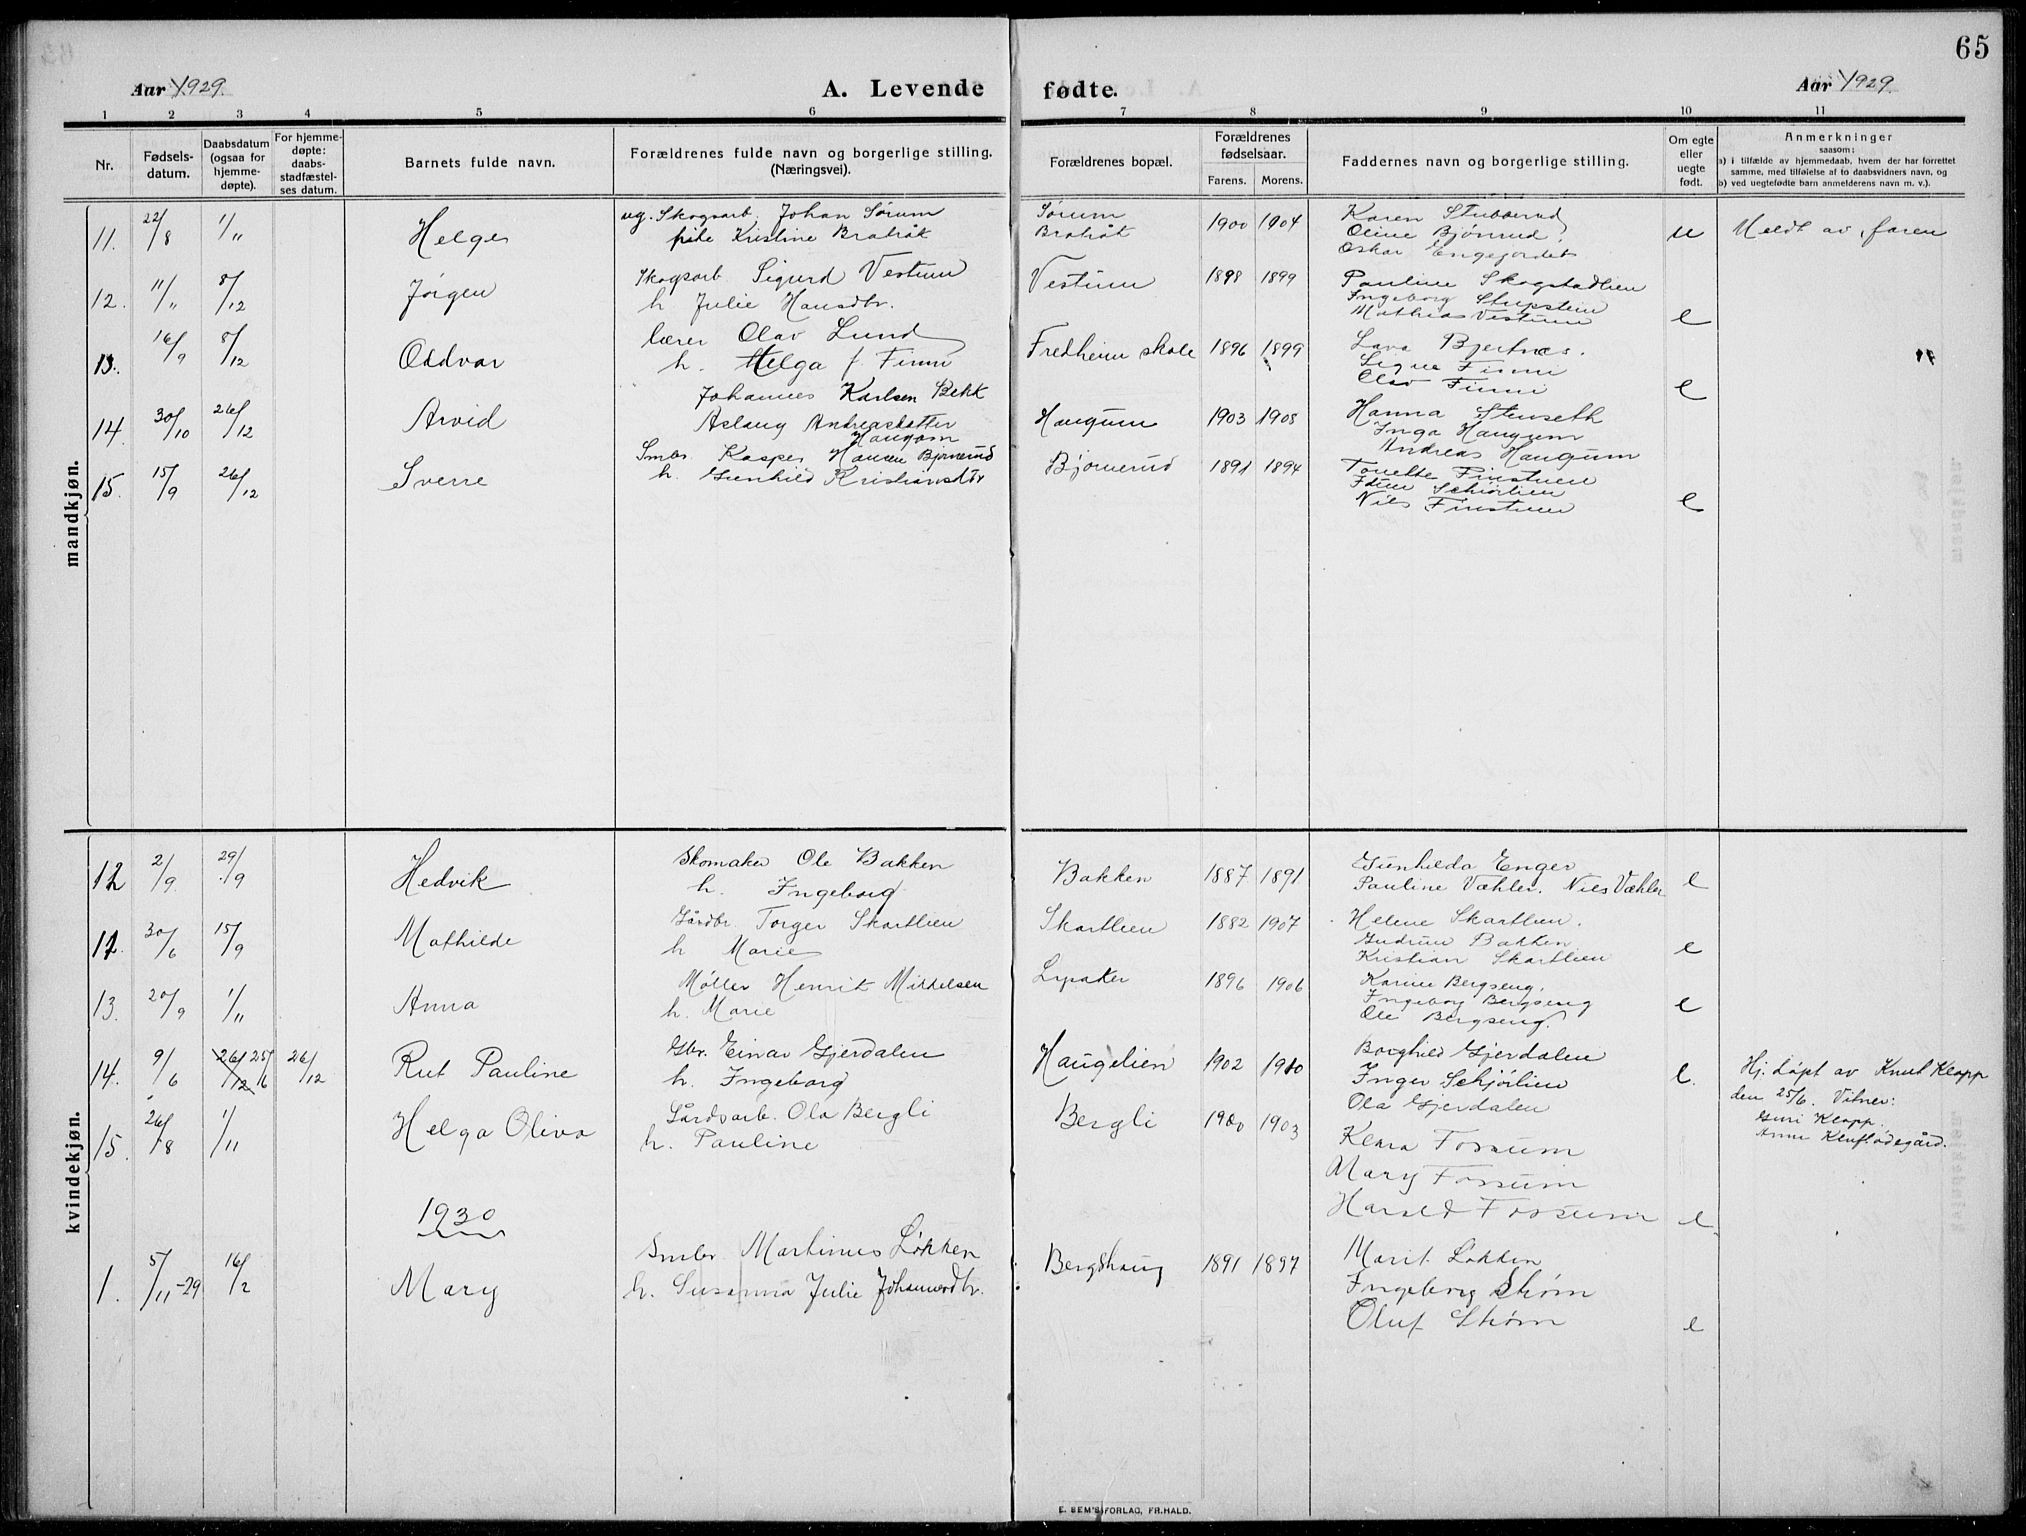 65
Aar 1929. A. Levende fødte. Aar 1929
1 2 3 4 5 6 7 8 9 10 11
Nr. Fødsels-datum. Daabsdatum (ogsaa for hjemme-døpte). For hjemme-døpte: daabs-stadfæstel-ses datum. Barnets fulde navn. Forældrenes fulde navn og borgerlige stilling. (Næringsvei). Forældrenes bopæl. Forældrenes fødselsaar. Farens. Morens. Faddernes navn og borgerlige stilling. Om egte eller uegte født. Anmerkninger saasom: a) i tilfælde av hjemmedaab, hvem der har forrettet samme, med tilføielse af to daabsvidners navn, og b) ved uegtefødte barn anmelderens navn m. v.).
mandkjøn.
11. 22/8 1/11 Helge ug. Skogsarb. Johan Sørum Sørum 1900 1904 Karen Stubberud u Meldt av faren
pike Kristine Bratråk Bratråt Oline Bjønrud
Oskar Engejordet
12. 11/11 8/12 Jørgen Skogsarb Sigurd Vestum Vestum 1898 1899 Pauline Skogstadlien
h. Julie Hansdtr. Ingeborg Stupstein
Mathias Vestum e
13. 16/9 8/12 Oddvar lærer Olav Lund Fredheim skole 1896 1899 Lava Bjertnes.
h. Helga f. Finni Signe Finni
Olav Finni e
14. 30/10 26/12 Arvid Johannes Karlsen Bekk Haugum 1903 1905 Hanna Stenseth
Aslaug Andreasdatter Inga Haugum
Haugom Andreas Haugum
15. 15/9 26/12 Sverre Smbr. Kasper Hansen Bjørnerud Bjørnerud 1891 1894 Tonette Finstuen
h. Gunhild Kristiansdtr Schjørlien
Nils Finstuen e
kvindekjøn.
12 2/9 29/9 Hedvik Skomaker Ole Bakken Bakken 1887 1891 Gunhilda Enger e
h. Ingeborg Pauline Væhler. Nils Væhler
12. 30/6 15/9 Mathilde Gårdbr. Torger Skartlien Skartlien 1882 1907 Helene Skartlien.
h Marie Gudrun Bakken e
Kristian Skartlien
13. 20/9 1/11 Anna Møller Henrik Mikkelsen Lyaker 1896 1906 Karine Bergseng.
h. Marie Ingeborg Bergseng e
Ole Bergseng.
14. 9/6 26/12 25/6 26/12 Rut Pauline Gbr. Einar Gjerdalen Haugelien 1902 1900 Borghild Gjerdalen e. Hj. døpt av Knut Klopp
h. Ingeborg Inger Schjørlien den 25/6. Vitner:
Ola Gjerdalen Guri Klopp.
15. 26/8 1/11 Helga Oliva Gårdsarb. Ola Bergli Bergli 1900 1903 Klara Fossum Anne
h. Pauline Mary Fossum
Harald Fossum e
1930
1. 5/11-29 16/2 Mary Smbr. Martinus Løkken Bergshaug 1891 1897 Marit Løkken
h. Susanna Julie Johannesdtr. Ingeborg Strøm
Oluf Strøm e
E. SEM'S FORLAG, FR.HALD.